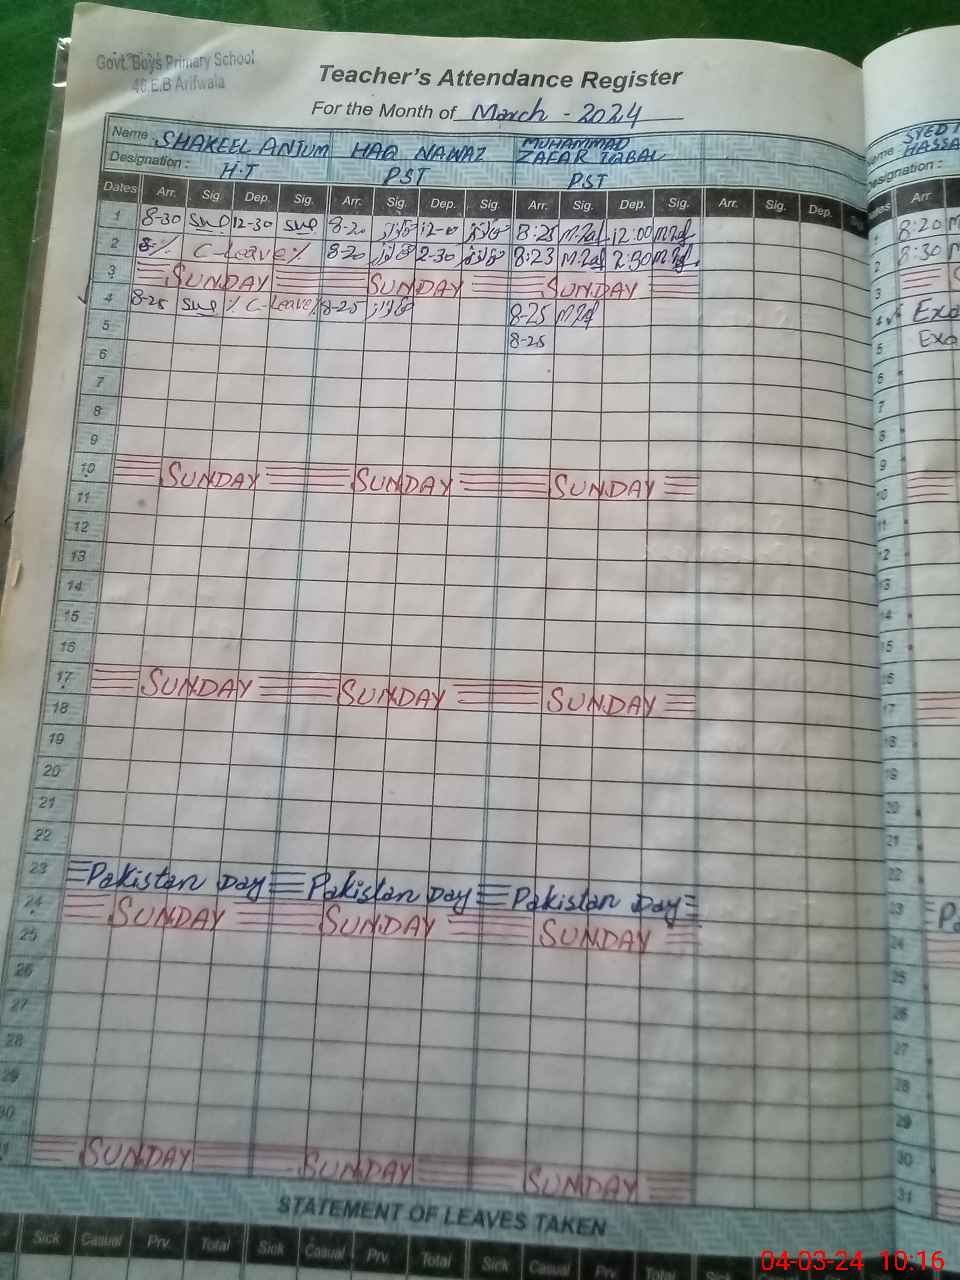 Govt. Boys Primary School
46.E.B Arifwala
Teacher's Attendance Register
For the Month of March - 2024
Name SHAKEEL ANJUM HAQ NAWAZ MUHAMMAD ZAFAR IQBAL
Designation : H.T PST PST
Dates Arr. Sig. Dep. Sig. Arr. Sig. Dep. Sig. Arr. Sig. Dep. Sig. Arr. Sig. Dep.
1 8-30 12-30 8-20 12-0 8:25 12:00
2 C-Leave 8-20 2-30 8:23 2:30
3 SUNDAY SUNDAY SUNDAY
4 8-25 C-Leave 8-25 8-25
5 8-25
6
7
8
9
10 SUNDAY SUNDAY SUNDAY
11
12
13
14
15
16
17 SUNDAY SUNDAY SUNDAY
18
19
20
21
22
23 Pakistan Day Pakistan Day Pakistan Day
24 SUNDAY SUNDAY SUNDAY
25
26
27
28
29
30
SUNDAY SUNDAY SUNDAY
STATEMENT OF LEAVES TAKEN
Sick Casual Prv. Total Sick Casual Prv. Total Sick Casual Prv. Total Sick
SYED
HASSA
Arr
8:20
8:30
3
Exa
5 Exa
6
7
8
9
10
11
12
13
14
15
16
17
18
19
20
21
22
23
24
25
26
27
28
29
30
31
04-03-24 10:16